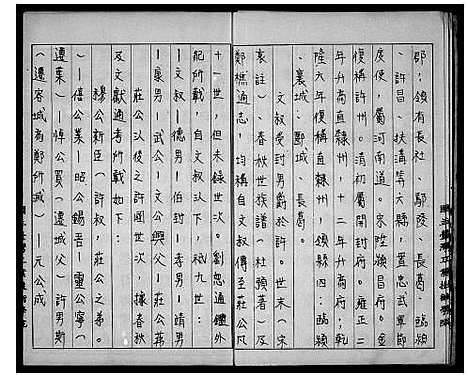 郡；領有長社、鄢陵、長葛、臨潁
、許昌、扶溝等六縣，置忠武軍節
度使，屬河南道。宋陞潁昌府。金
復稱許州。清初屬開封府。雍正二
年升爲直隸州，十二年升爲府；乾
隆六年復稱直隸州，領縣四：臨潁
、襄城、郾城、長葛。
文叔受封男爵於許。『元史』（
裴註）、春秋世族譜（杜預著）及
鄭樵通志，均稱自文叔傳至莊公凡
十一世，但未錄世次。劉恕通鑑外
紀所載，自文叔以下，祇九世：
｜文叔｜德男｜伯封｜孝男｜靖男
｜康男｜武公｜文公興父｜莊公茀
莊公以後之許國世次，據春秋
及文獻通考所載如下：
穆公新臣（許叔，莊公之弟。
）｜僖公業｜昭公錫吾｜靈公寧（
遷葉）｜悼公買（遷城父）許男斯
（遷容城爲鄭所滅）｜元公成